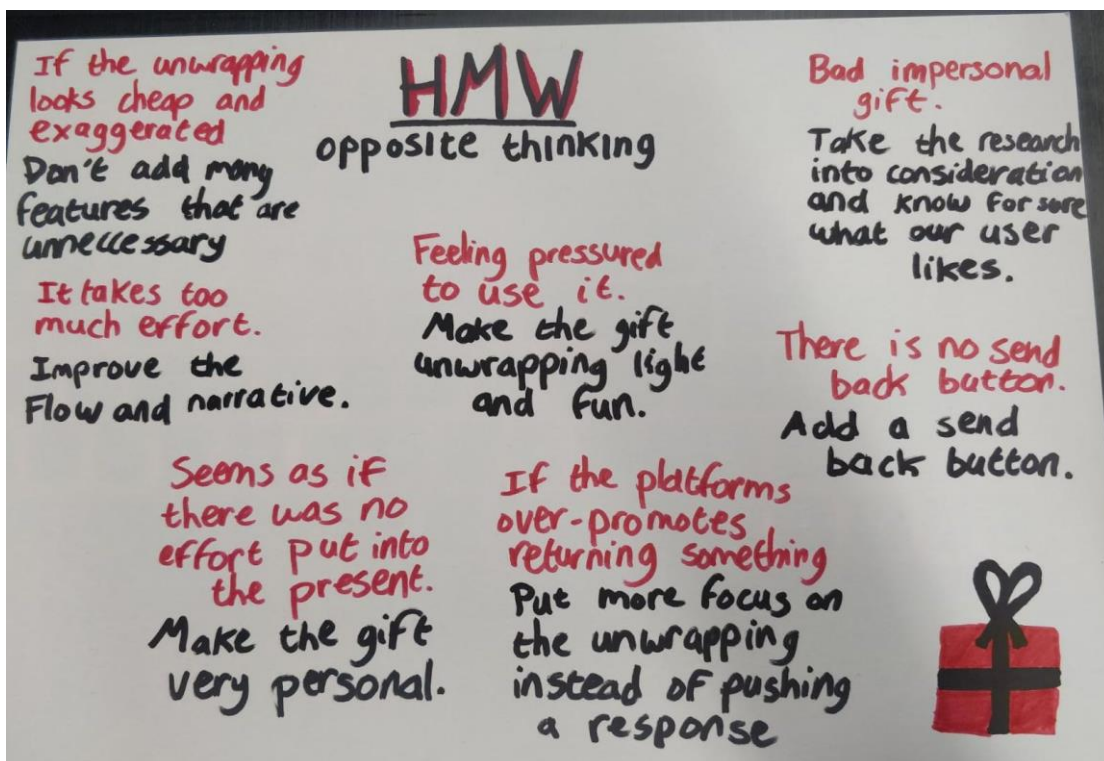 HMW
opposite thinking
If the unwrapping
looks cheap and
exaggerated
Don't add many
features that are
unneccessary
It takes too
much effort.
Improve the
Flow and narrative.
Feeling pressured
to use it.
Make the gift
unwrapping light
and fun.
Bad impersonal
gift.
Take the research
into consideration
and know for sure
what our user
likes.
There is no send
back button.
Add a send
back button.
Seems as if
there was no
effort put into
the present.
Make the gift
very personal.
If the platforms
over-promotes
returning something
Put more focus on
the unwrapping
instead of pushing
a response